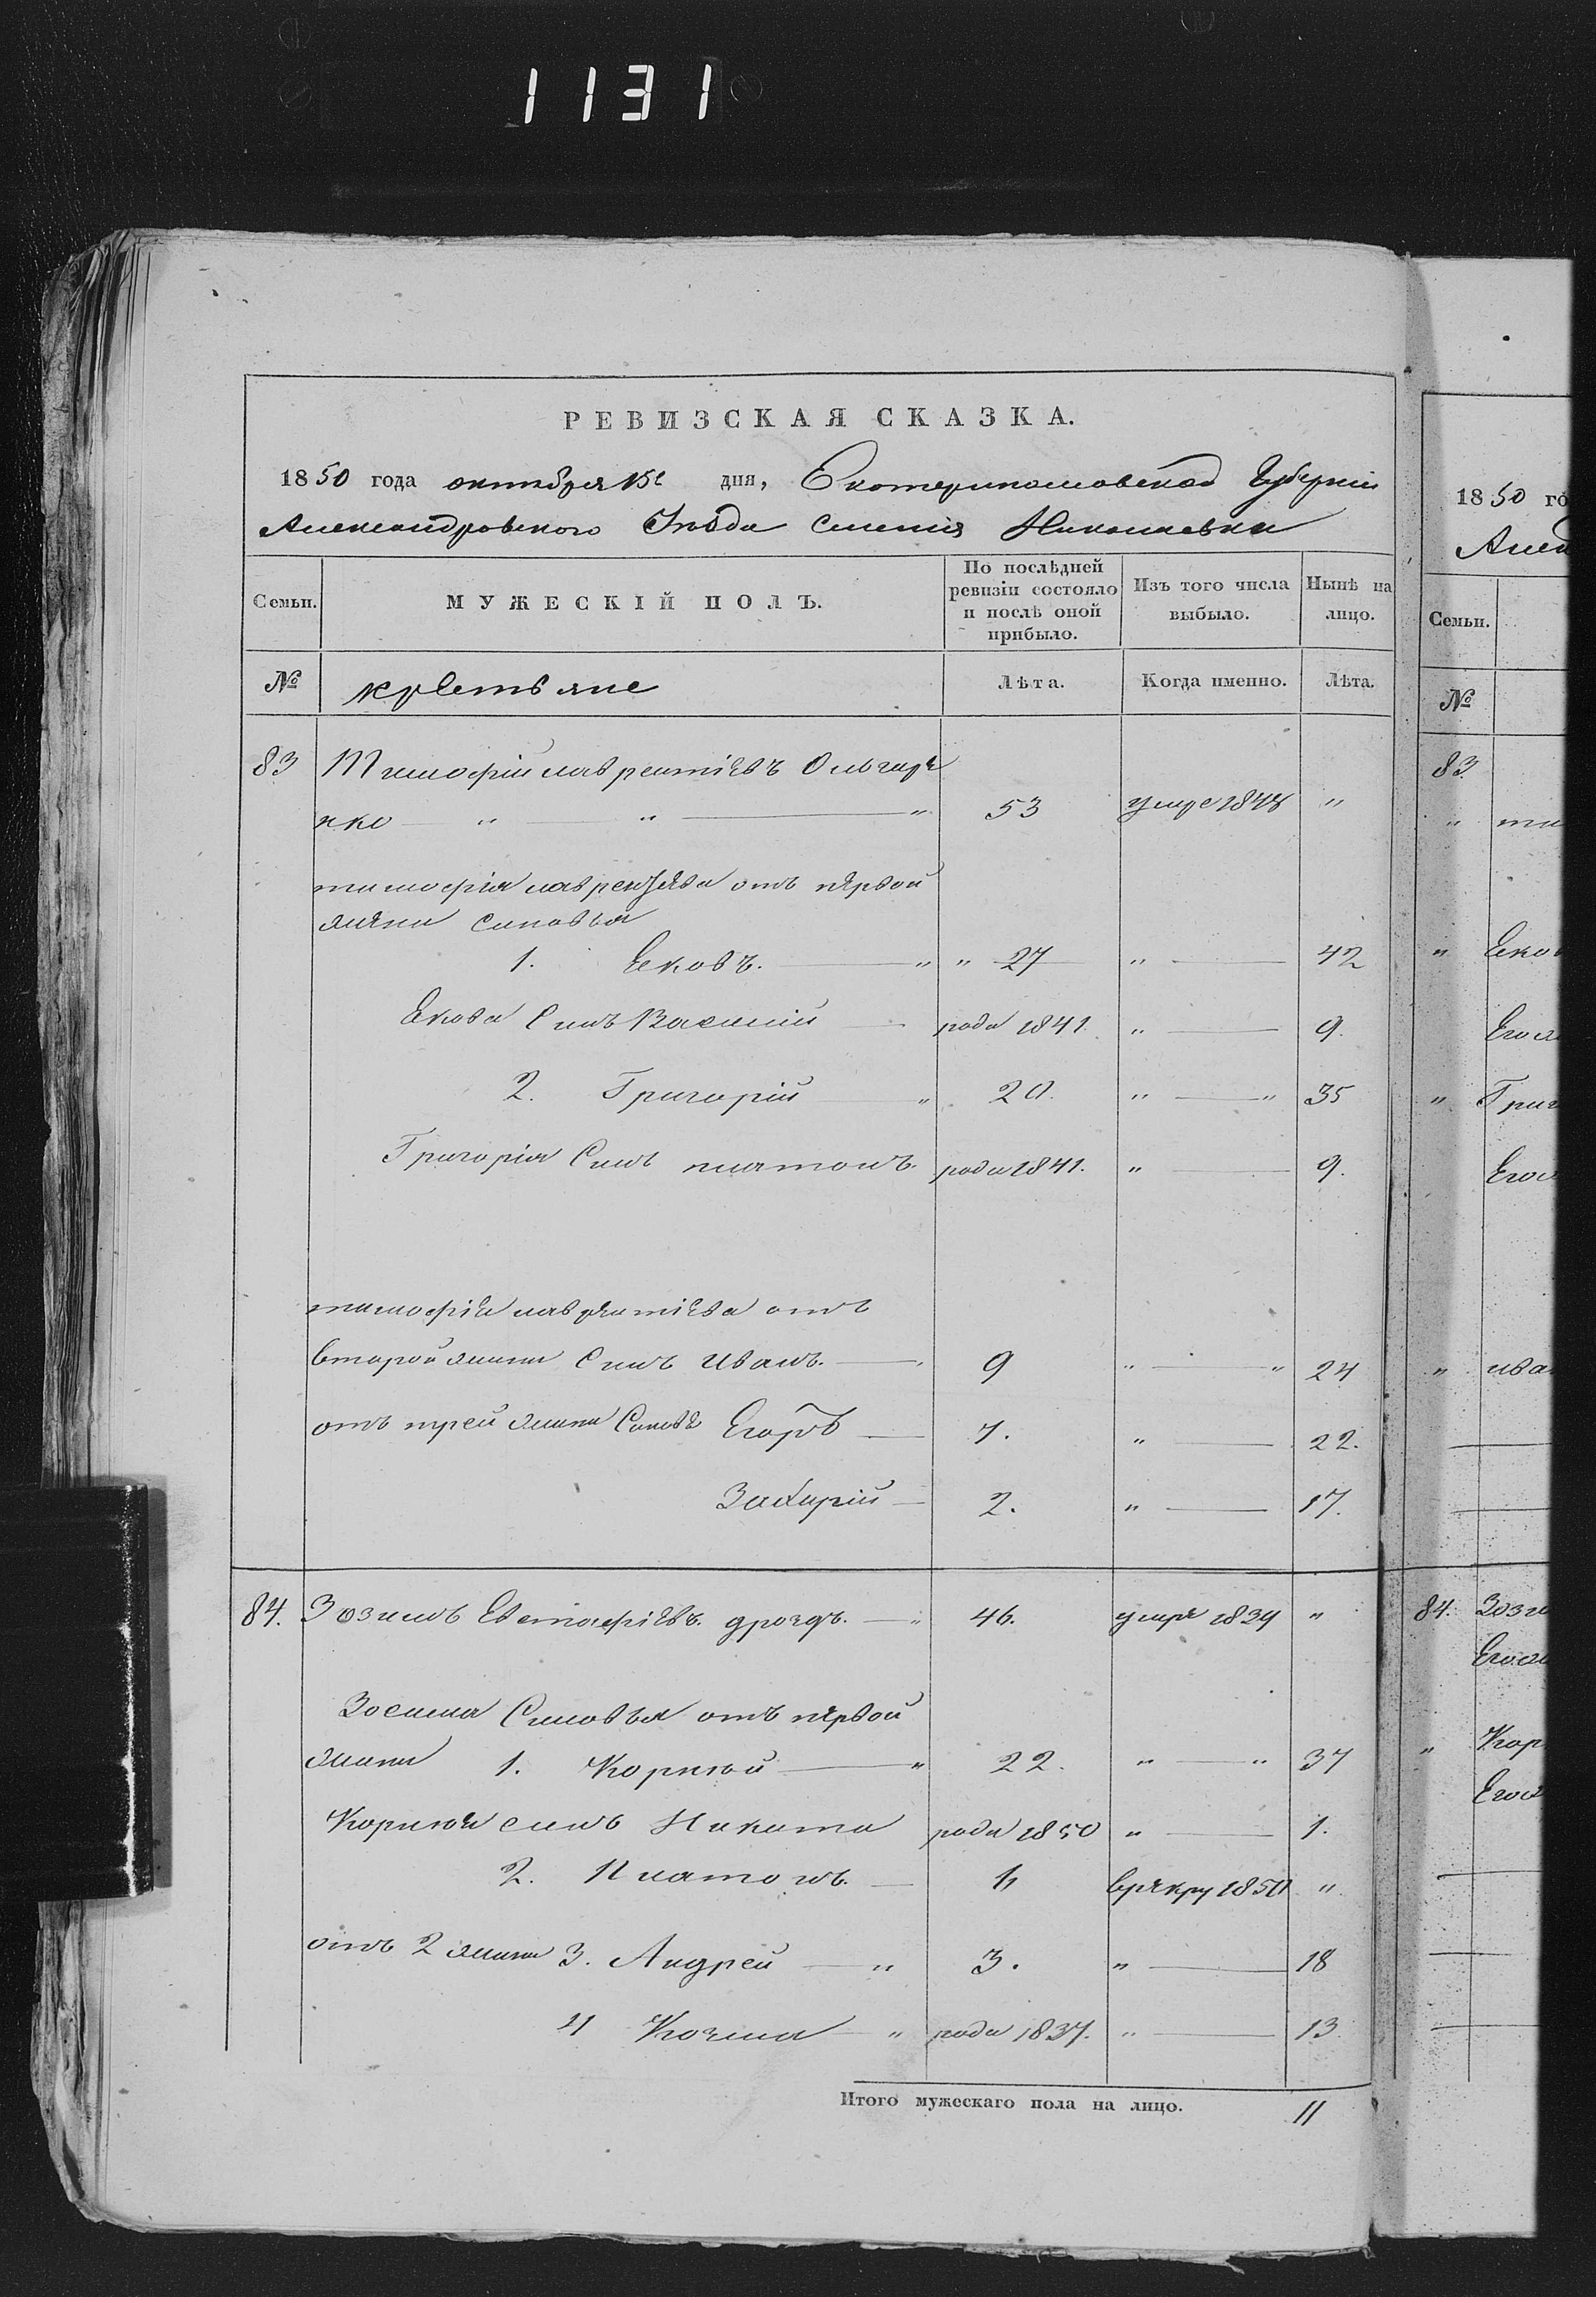 1131
РЕВИЗСКАЯ СКАЗКА.
1850 года октября 15 дня, Екатеринославской Губернии
Александровского Уезда Селения Николаевки
Семьи.
МУЖЕСКІЙ ПОЛЪ.
По послѣдней ревизіи состояло и послѣ оной прибыло.
Изъ того числа выбыло.
Нынѣ на лицо.
№ крестьяне Лѣта. Когда именно. Лѣта.
83 Тимофій лаврентіевъ
нко " " " 53 умре 1848 "
тимофія отъ первой
жены синовья
1. Ековъ. " " 27 " 42
Екова Синъ Василий рода 1841. " 9.
2. Григорій " 20. " " 35
Григорія Синъ платонъ. рода 1841. " 9.
тимофія лаврентіева отъ
второй жены Синъ иванъ. 9 " " 24
отъ трей жены Егоръ 7. " 22.
Захарій 2. " 17.
84. Зозимъ Евстафіевъ. дроздъ. " 46. умре 1839 "
Зосима Синовья отъ первой
жены 1. Корнѣй " 22. " " 37
Корнѣя синъ Никита рода 1850 " 1.
2. Платонъ. врекру 1850 "
отъ 2 жены 3. Андрей " 3. " 18
4 Козма " рода 1837. " 13
Итого мужескаго пола на лицо. 11
1850 го
Алек
Семьи.
№
83
"
" Еков
" Григ
" ива
84. Зози
" Кор